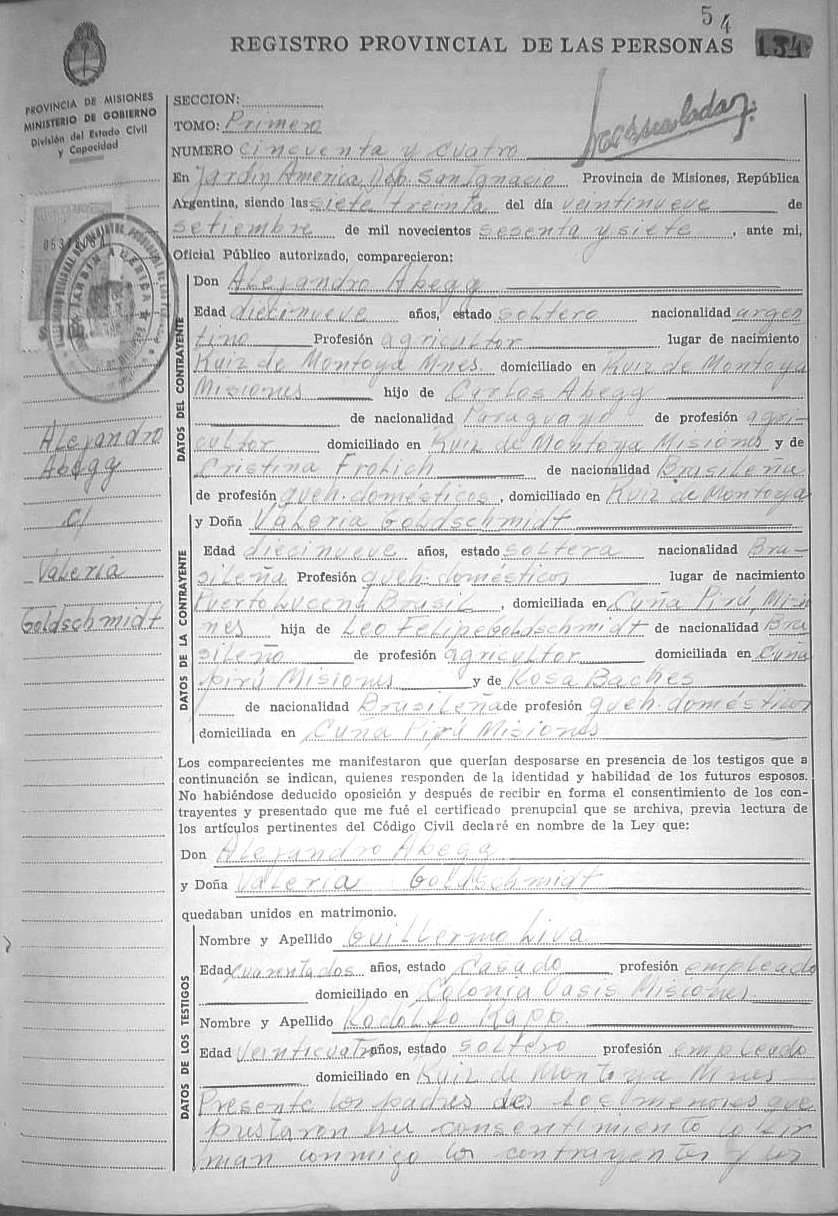 54
REGISTRO PROVINCIAL DE LAS PERSONAS 134
PROVINCIA DE MISIONES
MINISTERIO DE GOBIERNO
División del Estado Civil
y Capacidad
SECCION:
TOMO: Primero
NUMERO cincuenta y cuatro
En Jardín America, Dep. San Ignacio Provincia de Misiones, República
Argentina, siendo las siete treinta del día veintinueve de
setiembre de mil novecientos sesenta y siete, ante mi,
Oficial Público autorizado, comparecieron:
DATOS DEL CONTRAYENTE
Don Alejandro Abegg
Edad diecinueve años, estado soltero nacionalidad argen
tino Profesión agricultor lugar de nacimiento
Ruiz de Montoya Mnes. domiciliado en Ruiz de Montoya
Misiones hijo de Carlos Abegg
de nacionalidad Paraguayo de profesión agri-
cultor domiciliado en Ruiz de Montoya Misiones y de
Cristina Frolich de nacionalidad Brasileña
de profesión queh. domésticos, domiciliado en Ruiz de Montoya
DATOS DE LA CONTRAYENTE
y Doña Valeria Goldschmidt
Edad diecinueve años, estado soltera nacionalidad Bra-
sileña Profesión queh. domésticos lugar de nacimiento
Puerto Lucena Brasil, domiciliada en Cuña Pirú, Misio
nes hija de Leo Felipe Goldschmidt de nacionalidad Bra
sileño de profesión agricultor domiciliada en Cuña
Pirú Misiones y de Rosa Baches
de nacionalidad Brasileña de profesión queh. domésticos
domiciliada en Cuña Pirú Misiones
Alejandro
Abegg
c/
Valeria
Goldschmidt
Los comparecientes me manifestaron que querían desposarse en presencia de los testigos que a
continuación se indican, quienes responden de la identidad y habilidad de los futuros esposos.
No habiéndose deducido oposición y después de recibir en forma el consentimiento de los con-
trayentes y presentado que me fué el certificado prenupcial que se archiva, previa lectura de
los artículos pertinentes del Código Civil declaré en nombre de la Ley que:
Don Alejandro Abegg
y Doña Valeria Goldschmidt
quedaban unidos en matrimonio.
DATOS DE LOS TESTIGOS
Nombre y Apellido Guillermo Liva
Edad cuarentados años, estado Casado profesión empleado
domiciliado en Colonia Oasis Misiones
Nombre y Apellido Rodolfo Rapp.
Edad veinticuatro años, estado soltero profesión empleado
domiciliado en Ruiz de Montoya Mnes
Presente los padres de los menores que
prestaron su consentimiento lo fir
man conmigo los contrayentes y los